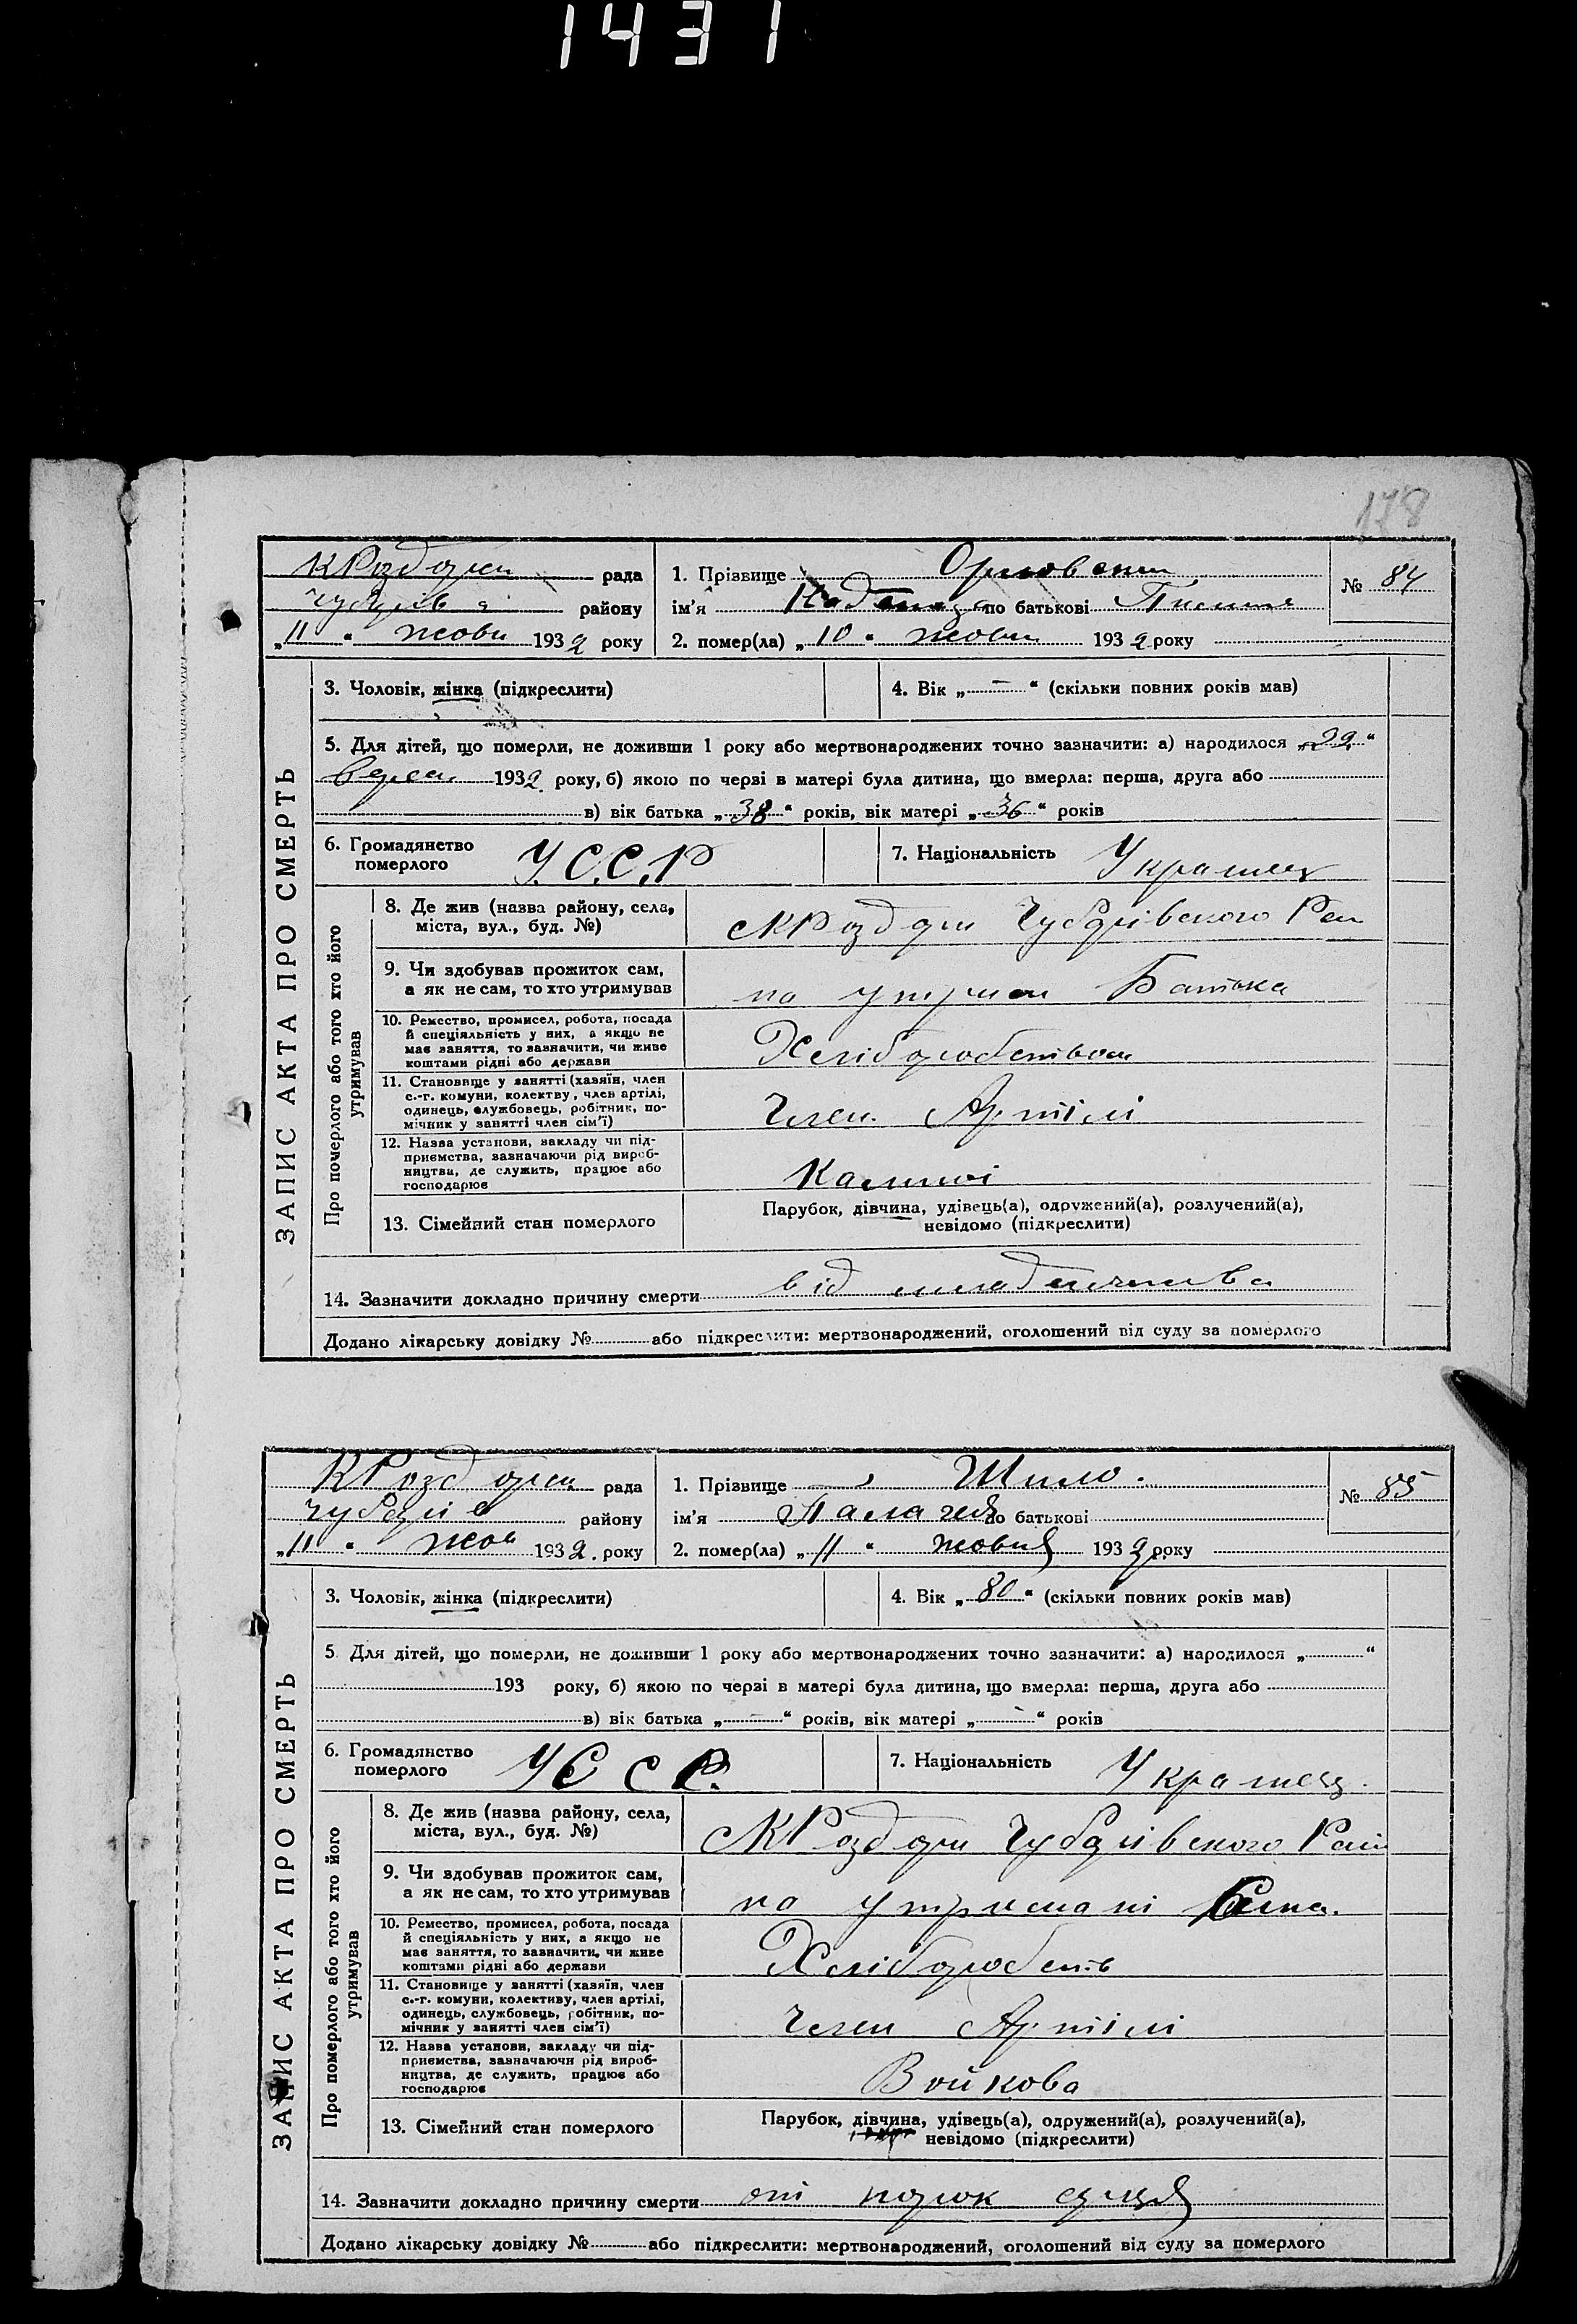 1431
178
КРоздори рада
Чубарів району
„11“ жовт 1932 року
1. Прізвище Орловська
ім'я по батькові
2. помер(ла) „10“ жовтн 1932 року
№ 84
ЗАПИС АКТА ПРО СМЕРТЬ
3. Чоловік, жінка (підкреслити)
4. Вік „—“ (скільки повних років мав)
5. Для дітей, що померли, не доживши 1 року або мертвонароджених точно зазначити: а) народилося „29“
верес 1932 року, б) якою по черзі в матері була дитина, що вмерла: перша, друга або
в) вік батька „38“ років, вік матері „36“ років
6. Громадянство
померлого
У.С.С.Р
7. Національність Українец
Про померлого або того хто його
утримував
8. Де жив (назва району, села,
міста, вул., буд. №)
сКРоздори Чубарівського Рай
9. Чи здобував прожиток сам,
а як не сам, то хто утримував
на утриман Батька
10. Ремество, промисел, робота, посада
й спеціяльність у них, а якщо не
має заняття, то зазначити, чи живе
коштами рідні або держави
Хліборобством
11. Становище у занятті (хазяїн, член
с.-г. комуни, колектву, член артілі,
одинець, службовець, робітник, по-
мічник у занятті член сім'ї)
Член Артілі
12. Назва установи, закладу чи під-
приємства, зазначаючи рід вироб-
ництва, де служить, працює або
господарює
13. Сімейний стан померлого
Парубок, дівчина, удівець(а), одружений(а), розлучений(а),
невідомо (підкреслити)
14. Зазначити докладно причину смерти від младенчества
Додано лікарську довідку № або підкреслити: мертвонароджений, оголошений від суду за померлого
КРоздори рада
Чубарів району
„11“ жов 1932. року
1. Прізвище Шило.
ім'я Палагея по батькові
2. помер(ла) „11“ жовтня 1932 року
№ 85
ЗАПИС АКТА ПРО СМЕРТЬ
3. Чоловік, жінка (підкреслити)
4. Вік „80“ (скільки повних років мав)
5. Для дітей, що померли, не доживши 1 року або мертвонароджених точно зазначити: а) народилося „ “
193 року, б) якою по черзі в матері була дитина, що вмерла: перша, друга або
в) вік батька „—“ років, вік матері „—“ років
6. Громадянство
померлого
УССР.
7. Національність Українец.
Про померлого або того хто його
утримував
8. Де жив (назва району, села,
міста, вул., буд. №)
сКРоздори Чубарівського Рай
9. Чи здобував прожиток сам,
а як не сам, то хто утримував
на утримані Сина.
10. Ремество, промисел, робота, посада
й спеціяльність у них, а якщо не
має заняття, то зазначити, чи живе
коштами рідні або держави
Хліборобств
11. Становище у занятті (хазяїн, член
с.-г. комуни, колективу, член артілі,
одинець, службовець, робітник, по-
мічник у занятті член сім'ї)
Член Артілі
12. Назва установи, закладу чи під-
приємства, зазначаючи рід вироб-
ництва, де служить, працює або
господарює
Войкова
13. Сімейний стан померлого
Парубок, дівчина, удівець(а), одружений(а), розлучений(а),
невідомо (підкреслити)
14. Зазначити докладно причину смерти от порок серця
Додано лікарську довідку № або підкреслити: мертвонароджений, оголошений від суду за померлого